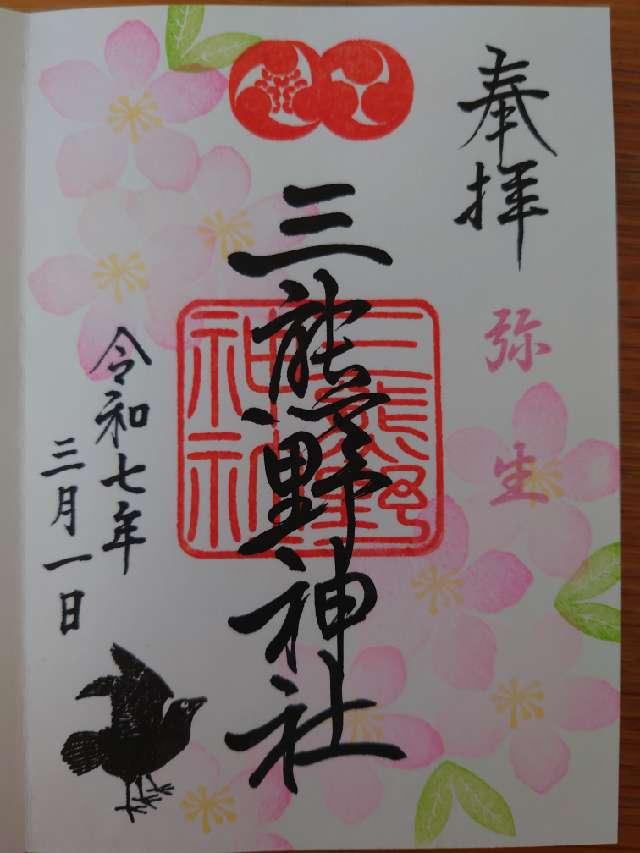 奉拝
弥生
三熊野神社
三熊野
神社
令和七年
三月一日